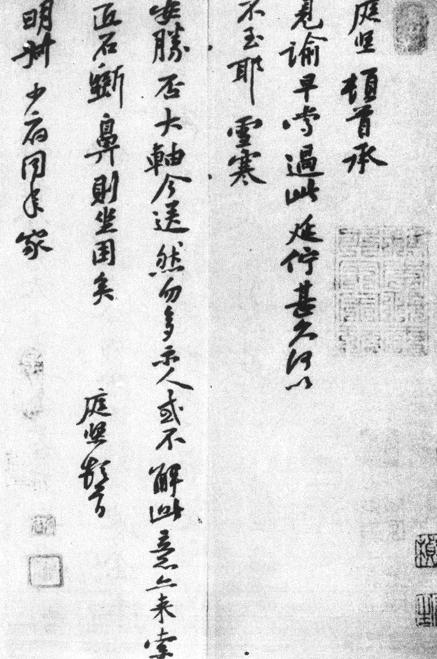 庭堅頓首承
見諭早嘗過此延佇甚久何以
不至耶雪寒
安勝否大軸今送然勿多示人或不解此意亦来索
匠石斲鼻則坐困矣 庭堅頓首
明叔少府同年家